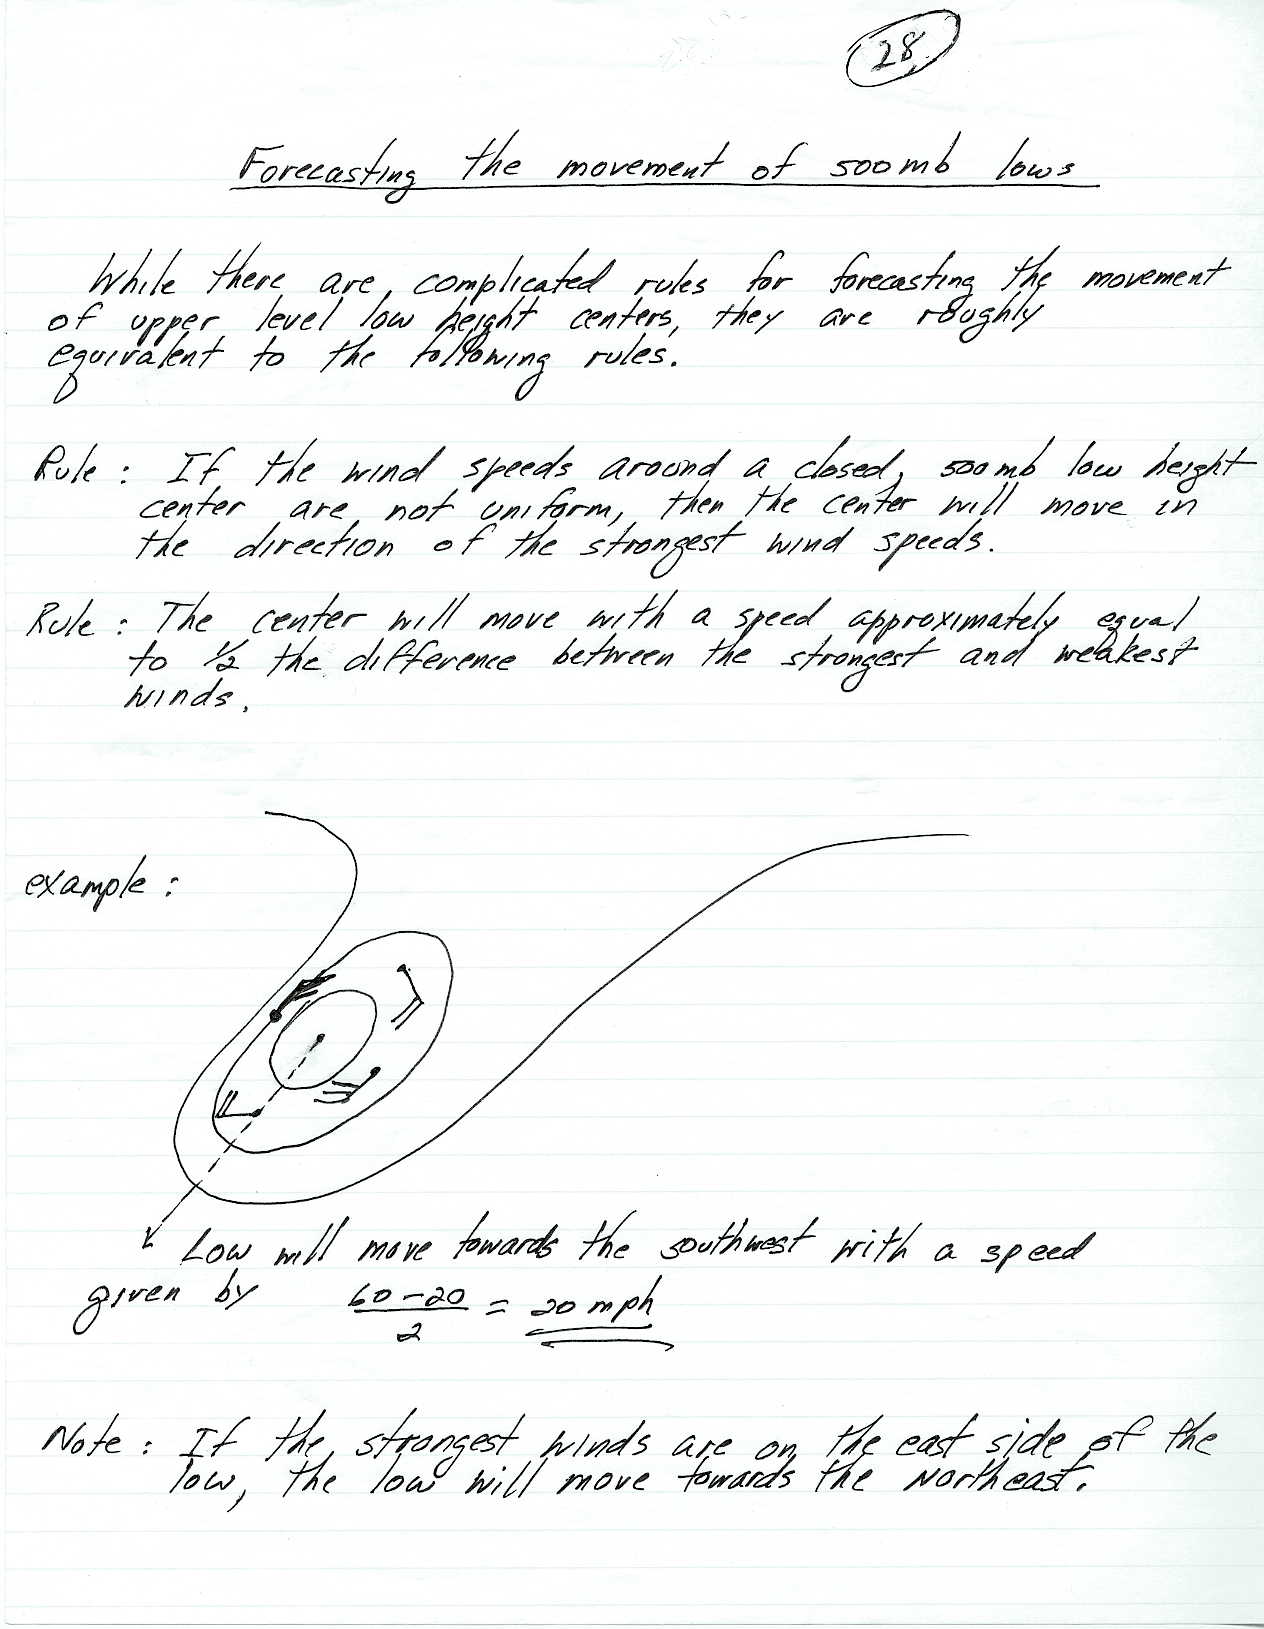 28
Forecasting the movement of 500mb lows
While there are complicated rules for forecasting the movement
of upper level low height centers, they are roughly
equivalent to the following rules.
Rule: If the wind speeds around a closed, 500mb low height
center are not uniform, then the center will move in
the direction of the strongest wind speeds.
Rule: The center will move with a speed approximately equal
to 1/2 the difference between the strongest and weakest
winds.
example:
Low will move towards the southwest with a speed
given by 60-20/2 = 20 mph
Note: If the strongest winds are on the east side of the
low, the low will move towards the Northeast.